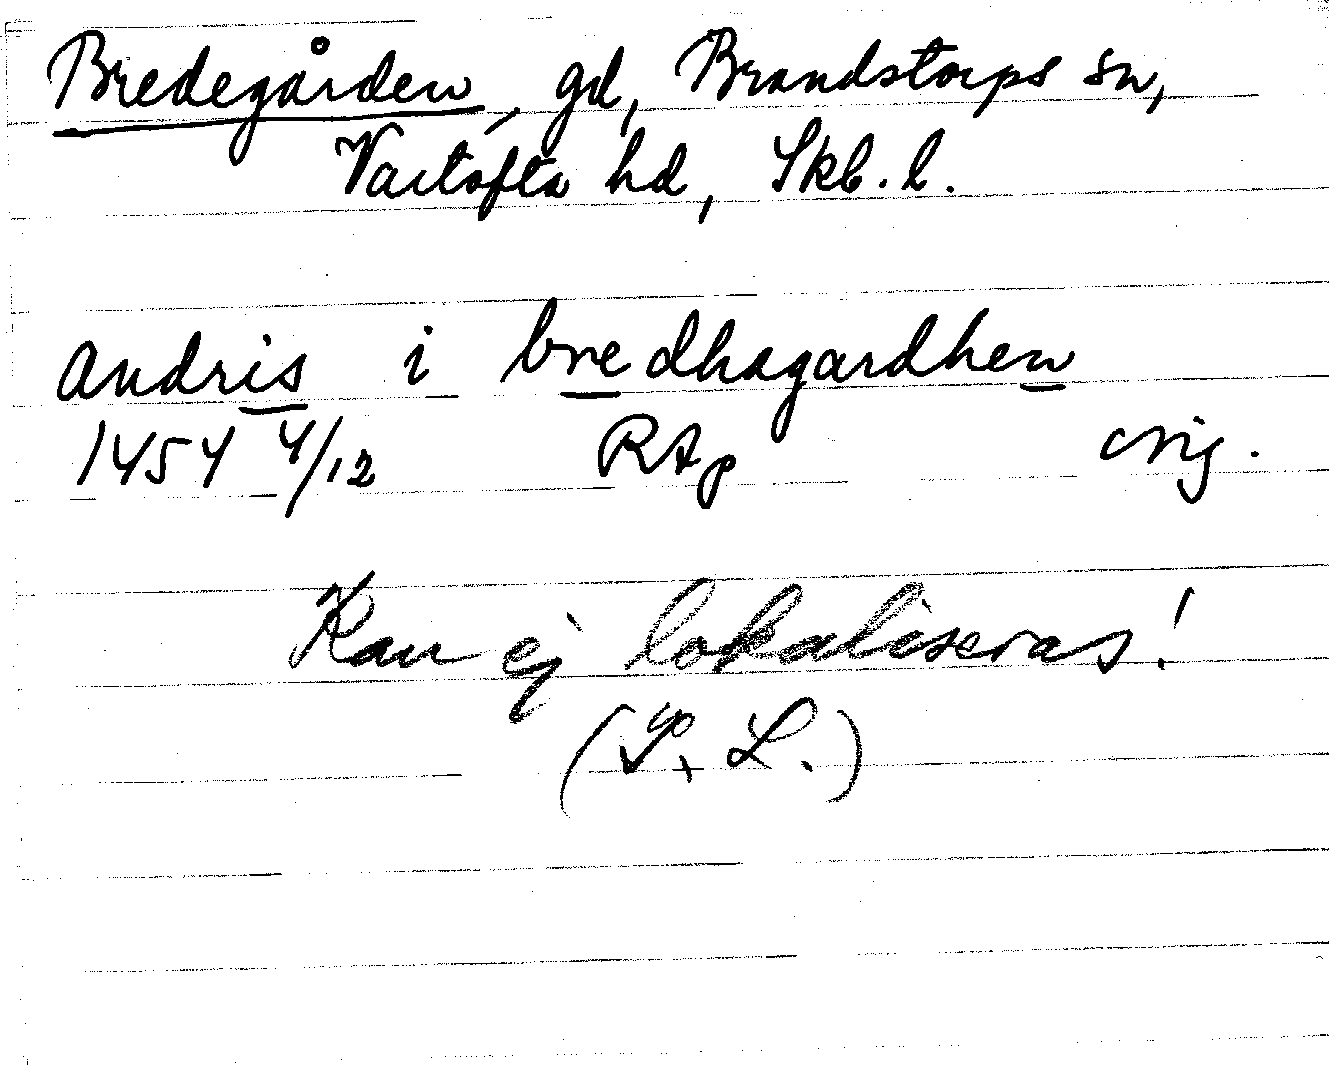 Bredegården, gd, Brandstorps sn,
Vartofta hd, Skb. l.
andris i bredhagardhen
1454 4/12 RAp orig.
Kan ej lokaliseras!
(S. L.)